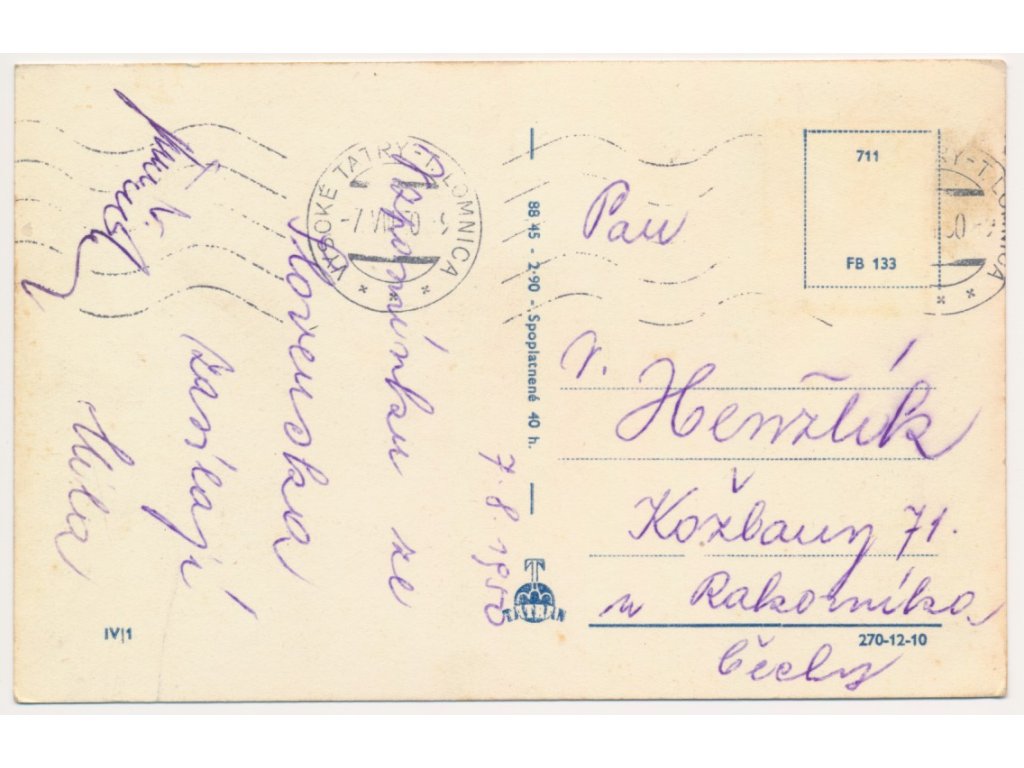 Vzpomínku ze
Slovenska
zasílají
Míla
VYSOKÉ TATRY-T.LOMNICA
-7.VIII.50-9
7.8.1950
8845 - 2-90 - Spoplatnené 40 h.
TATRAN
IV|1
711
FB 133
RY-T.LOMNICA
50-9
Pan
V. Henžlík
Kožlany 71.
u Rakovníka
Čechy
270-12-10